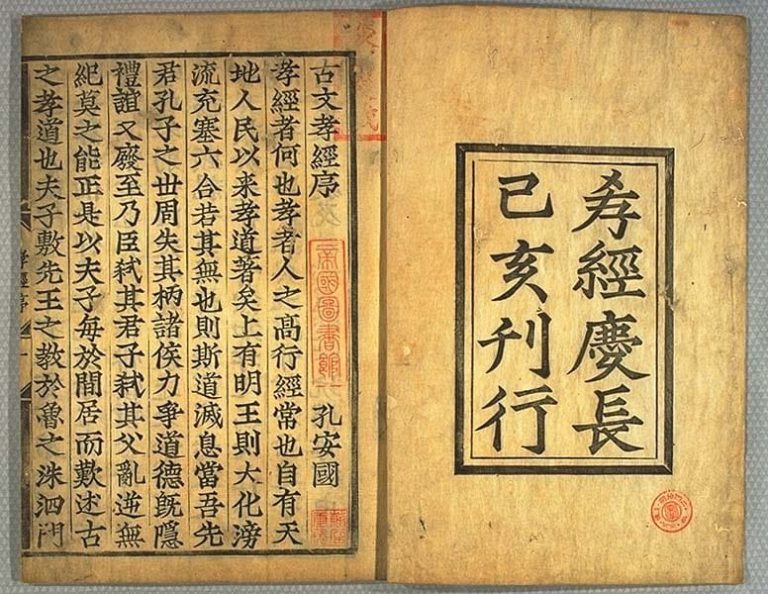 孝經慶長
己亥刊行
古文孝經序 孔安國
帝國圖書館
孝經者何也孝者人之髙行經常也自有天
地人民以來孝道著矣上有明王則大化滂
流充塞六合若其無也則斯道滅息當吾先
君孔子之世周失其柄諸侯力爭道德旣隱
禮誼又廢至乃臣弑其君子弑其父亂逆無
紀莫之能正是以夫子每於閒居而歎述古
之孝道也夫子敷先王之教於魯之洙泗門
孝經序